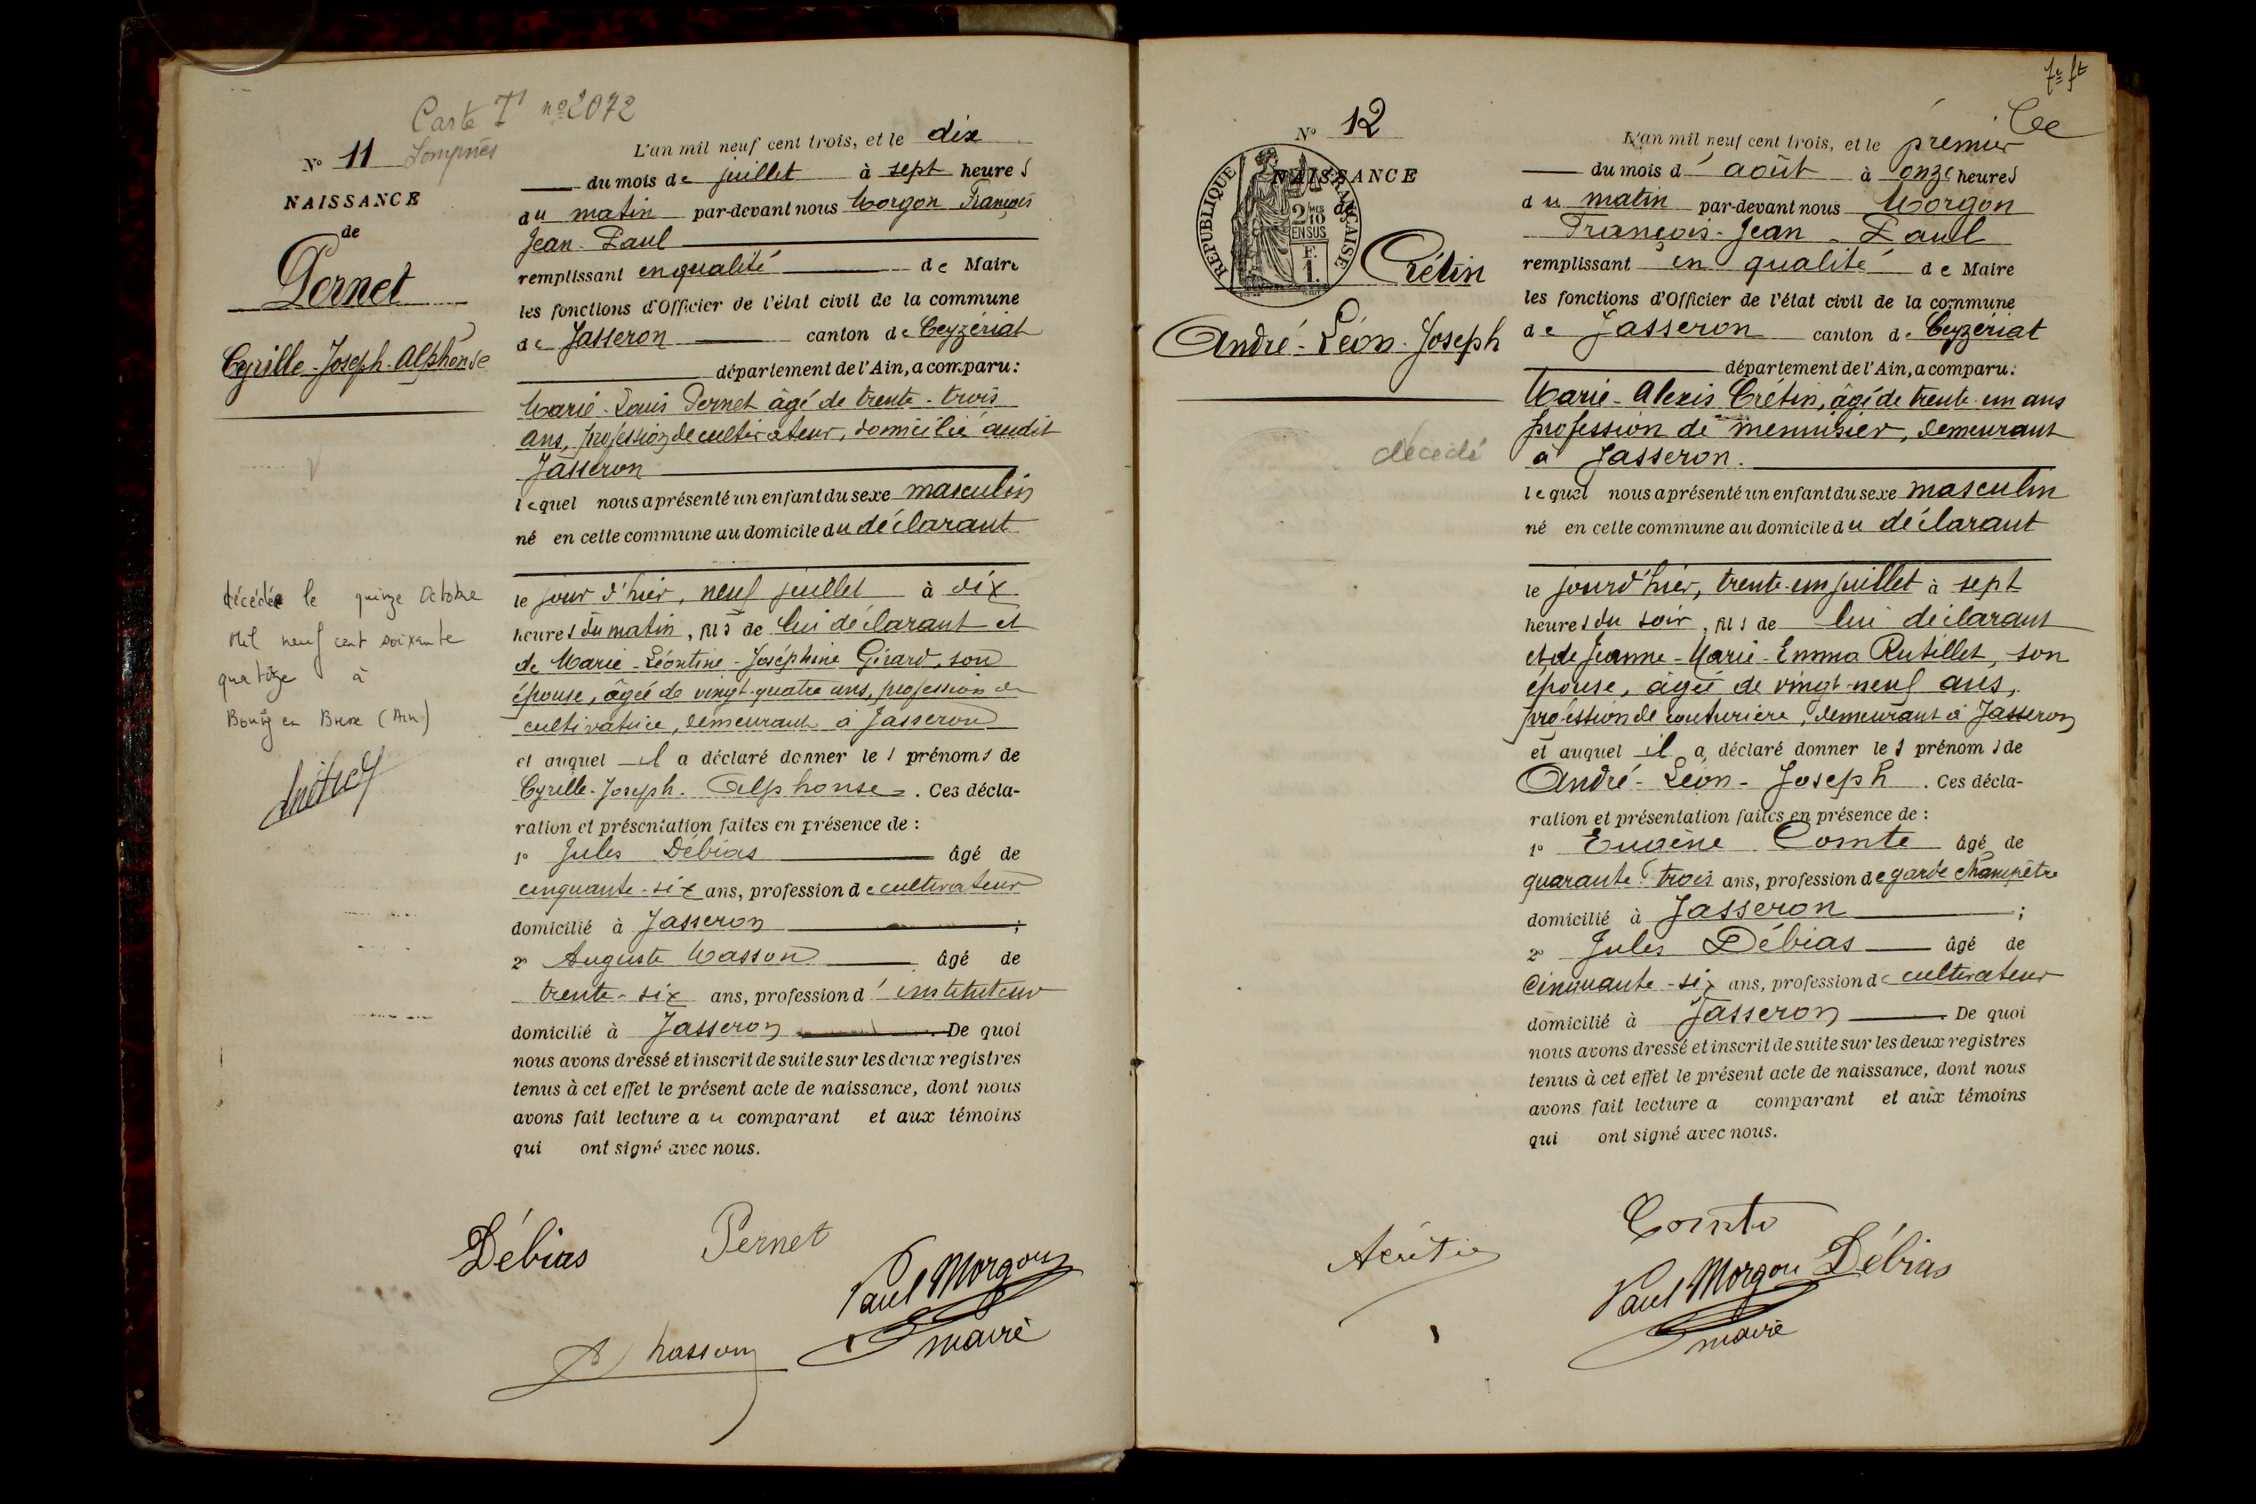 Carte T n° 2072
Lompnes
N° 11
NAISSANCE
de
Pernet
Cyrille-Joseph-Alphonse
décédé le quinze Octobre
Mil neuf cent soixante
quatorze à
Bourg en Bresse (Ain)
L'an mil neuf cent trois, et le dix
du mois de juillet à sept heures
du matin par-devant nous Morgon François
Jean-Paul
remplissant en qualité de Maire
les fonctions d'Officier de l'état civil de la commune
de Jasseron canton de Ceyzériat
département de l'Ain, a comparu:
Marie-Louis Pernet âgé de trente-trois
ans, profession de cultivateur, domicilié audit
Jasseron
lequel nous a présenté un enfant du sexe masculin
né en cette commune au domicile du déclarant
le jour d'hier, neuf juillet à dix
heures du matin, fils de lui déclarant et
de Marie-Léontine-Joséphine Girard, son
épouse, âgée de vingt-quatre ans, profession de
cultivatrice, demeurant à Jasseron
et auquel il a déclaré donner les prénoms de
Cyrille-Joseph-Alphonse. Ces décla-
ration et présentation faites en présence de:
1° Jules Débias âgé de
cinquante-six ans, profession de cultivateur
domicilié à Jasseron;
2° Auguste Masson âgé de
trente-six ans, profession d'instituteur
domicilié à Jasseron. De quoi
nous avons dressé et inscrit de suite sur les deux registres
tenus à cet effet le présent acte de naissance, dont nous
avons fait lecture au comparant et aux témoins
qui ont signé avec nous.
Débias Pernet
Paul Morgon
maire
A Masson
7e ft
N° 12
NAISSANCE
de
RÉPUBLIQUE FRANÇAISE
2/10 EN SUS
F. 1
Crétin
André-Léon-Joseph
décédé
L'an mil neuf cent trois, et le premier
du mois d'août à onze heures
du matin par-devant nous Morgon
François-Jean-Paul
remplissant en qualité de Maire
les fonctions d'Officier de l'état civil de la commune
de Jasseron canton de Ceyzériat
département de l'Ain, a comparu:
Marie-Alexis Crétin, âgé de trente-un ans
profession de menuisier, demeurant
à Jasseron.
lequel nous a présenté un enfant du sexe masculin
né en cette commune au domicile du déclarant
le jour d'hier, trente-un juillet à sept
heures du soir, fils de lui déclarant
et de Jeanne-Marie-Emma Rutillet, son
épouse, âgée de vingt-neuf ans,
profession de couturière, demeurant à Jasseron
et auquel il a déclaré donner les prénoms de
André-Léon-Joseph. Ces décla-
ration et présentation faites en présence de:
1° Eugène Comte âgé de
quarante-trois ans, profession de garde champêtre
domicilié à Jasseron;
2° Jules Débias âgé de
cinquante-six ans, profession de cultivateur
domicilié à Jasseron. De quoi
nous avons dressé et inscrit de suite sur les deux registres
tenus à cet effet le présent acte de naissance, dont nous
avons fait lecture a comparant et aux témoins
qui ont signé avec nous.
Comte
A Crétin
Paul Morgon Débias
maire